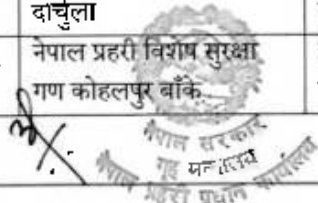 दार्चुला
नेपाल प्रहरी विशेष सुरक्षा
गण कोहलपुर बाँके
नेपाल सरकार
गृह मन्त्रालय
नेपाल प्रहरी प्रधान कार्यालय